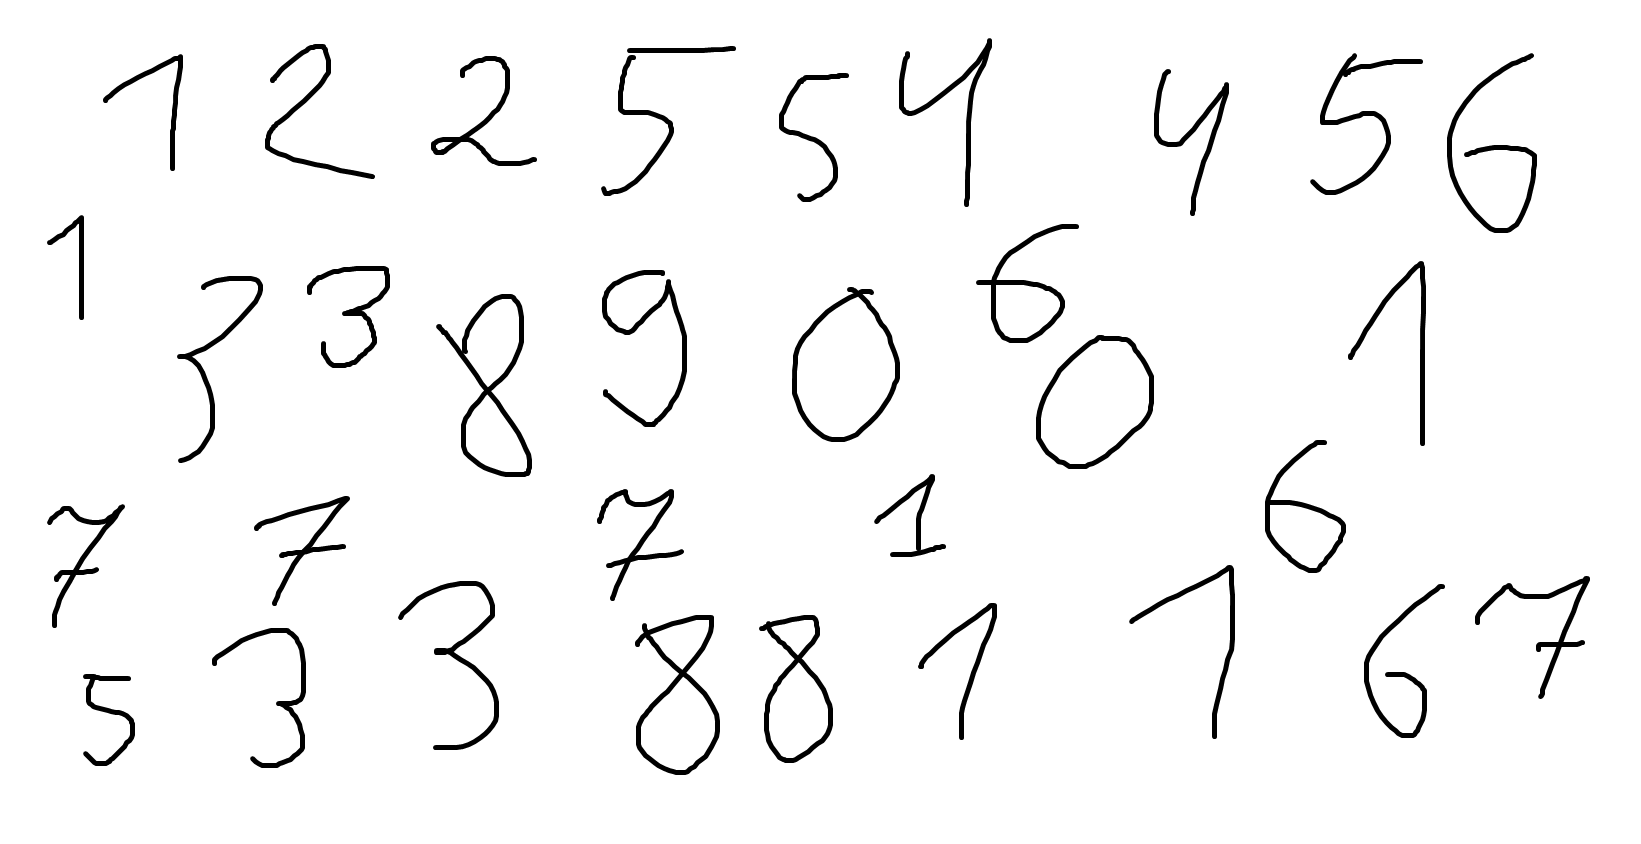 1 2 2 5 5 4 4 5 6
1 3 3 8 9 0 6 0 1
7 7 7 1 6
5 3 3 8 8 1 1 6 7